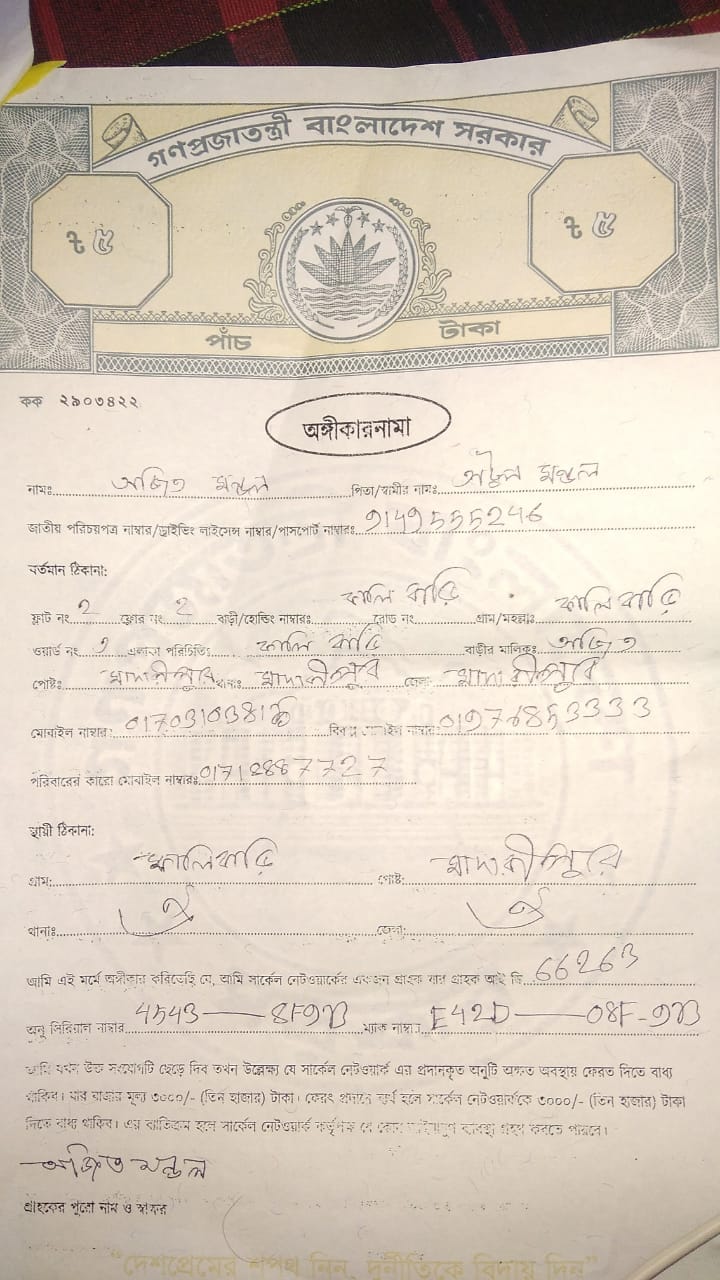 গণপ্রজাতন্ত্রী বাংলাদেশ সরকার
৳ ৫ ৳ ৫
পাঁচ টাকা
কক ২৯০৩৪২২
অঙ্গীকারনামা
নামঃ অজিত মন্ডল পিতা/স্বামীর নামঃ অটুল মন্ডল
জাতীয় পরিচয়পত্র নাম্বার/ড্রাইভিং লাইসেন্স নাম্বার/পাসপোর্ট নাম্বারঃ 9149555246
বর্তমান ঠিকানা:
ফ্লাট নং 2 ফ্লোর নং 2 বাড়ী/হোল্ডিং নাম্বারঃ কালি বাড়ি রোড নং গ্রাম/মহল্লাঃ কালি বাড়ি
ওয়ার্ড নং ১ এলাকা পরিচিতিঃ কালি বাড়ি বাড়ীর মালিকঃ অজিত
পোষ্টঃ মাদারীপুর থানাঃ মাদারীপুর জেলা মাদারীপুর
মোবাইল নাম্বার: মোবাইল নাম্বার: 01976853333
পরিবারের কারো মোবাইল নাম্বারঃ 01712887727
স্থায়ী ঠিকানা:
গ্রাম: কালিবাড়ি পোষ্ট: মাদারীপুর
থানাঃ ঐ জেলা: ঐ
আমি এই মর্মে অঙ্গীকার করিতেছি যে, আমি সার্কেল নেটওয়ার্কের একজন গ্রাহক যার গ্রাহক আই ডি 66263
অনু সিরিয়াল নাম্বার 4543 — 8F9B ম্যাক নাম্বার E42D — 08F-9B
আমি যখন উক্ত সংযোগটি ছেড়ে দিব তখন উল্লেক্ষ্য যে সার্কেল নেটওয়ার্ক এর প্রদানকৃত অনুটি অক্ষত অবস্থায় ফেরত দিতে বাধ্য
থাকিব। যার বাজার মূল্য ৩০০০/- (তিন হাজার) টাকা। ফেরৎ প্রদানে ব্যর্থ হলে সার্কেল নেটওয়ার্ককে ৩০০০/- (তিন হাজার) টাকা
দিতে বাধ্য থাকিব। এর ব্যতিক্রম হলে সার্কেল নেটওয়ার্ক কর্তৃপক্ষ যে কোন আইনানুগ ব্যবস্থা গ্রহণ করতে পারবে।
অজিত মন্ডল
গ্রাহকের পুরো নাম ও স্বাক্ষর
“দেশপ্রেমের শপথ নিন, দুর্নীতিকে বিদায় দিন”